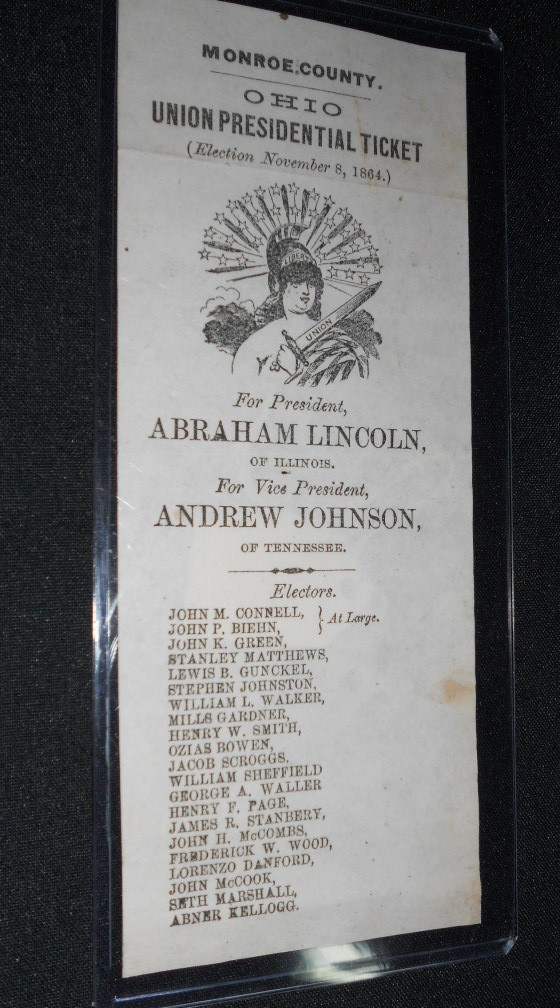 MONROE COUNTY.
OHIO
UNION PRESIDENTIAL TICKET
(Election November 8, 1864.)
LIBERTY
UNION
For President,
ABRAHAM LINCOLN,
OF ILLINOIS.
For Vice President,
ANDREW JOHNSON,
OF TENNESSEE.
Electors.
JOHN M. CONNELL,
JOHN P. BIEHN, } At Large.
JOHN K. GREEN,
STANLEY MATTHEWS,
LEWIS B. GUNCKEL,
STEPHEN JOHNSTON,
WILLIAM L. WALKER,
MILLS GARDNER,
HENRY W. SMITH,
OZIAS BOWEN,
JACOB SCROGGS.
WILLIAM SHEFFIELD
GEORGE A. WALLER
HENRY F. PAGE,
JAMES R. STANBERY,
JOHN H. McCOMBS,
FREDERICK W. WOOD,
LORENZO DANFORD,
JOHN McCOOK,
SETH MARSHALL,
ABNER KELLOGG.